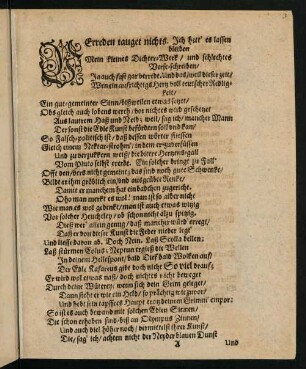 Erreden tauget nichts. Ich hatt' es lassen
bleiben
Mein kleines Dichter-Werk / und schlechtes
Verse-schreiben /
In auch fast gar verrebt. Und daß / weil dieser zeit /
Wenig ein aufrichtigs Hertz voll teutscher Redligkeit /
Ein gut-gemeinter Sinn / bißweilen etwas setzet /
Obs gleich auch lobens wert / der nichts wird geschetzet
Aus lautrem Haß und Neid; weil / sag ich / mancher Mann
Der sonst die Edle Kunst befördern soll und kan /
So Falsch-politisch ist / daß dessen wörter fliessen
Gleich einem Nektar-strohm / in dem er zu versüssen
Und zu verzukkern weiß die bittre Hertzens-gall
Vom Pluto selbst ererbt. Ein solcher bringt zu Fall'
Offt den / ders nicht gemeint; das sind noch gute Schwenke /
Bild er ihm gröblich ein / und mitgeübte Renke /
Damit er manchem hat ein badchen zugericht.
Oho man merkt es wol: man ist so alber nicht
Wie man es wol gedenkt / man ist auch etwas witzig
Vor solcher Heucheley / ob schon nicht alzu spitzig.
Diß wer' allein genug / daß mancher würd' erregt /
Daß er von dieser Kunst die Feder nieder legt'
Und liesse davon ab. Doch Nein. Laß Scylla beilen;
Laß stürmen Eolus; Neptun ergieß den Wellen
In deinem Hellespont / balb Dies' balb Wolken auf;
Die Edle Kastaleus gibt doch nicht So viel drauf;
Er wird wol etwas naß / doch nichtes nicht beweget
Durch deine Wüterey / wenn sich dein Grim geleget /
Dann steht er wie ein Held / so prächtig wie zuvor /
Und hebt sein tapffres Haupt trotz deinem Grimm' empor;
So ist es auch bewand mit solchen Edlen Sinnen /
Die schon erhoben sind biß an Olympus Zinnen /
Und auch viel höher noch / vermittelst ihrer Kunst /
Die / sag' ich / achten nicht der Neyder blauen Dunst
A Und